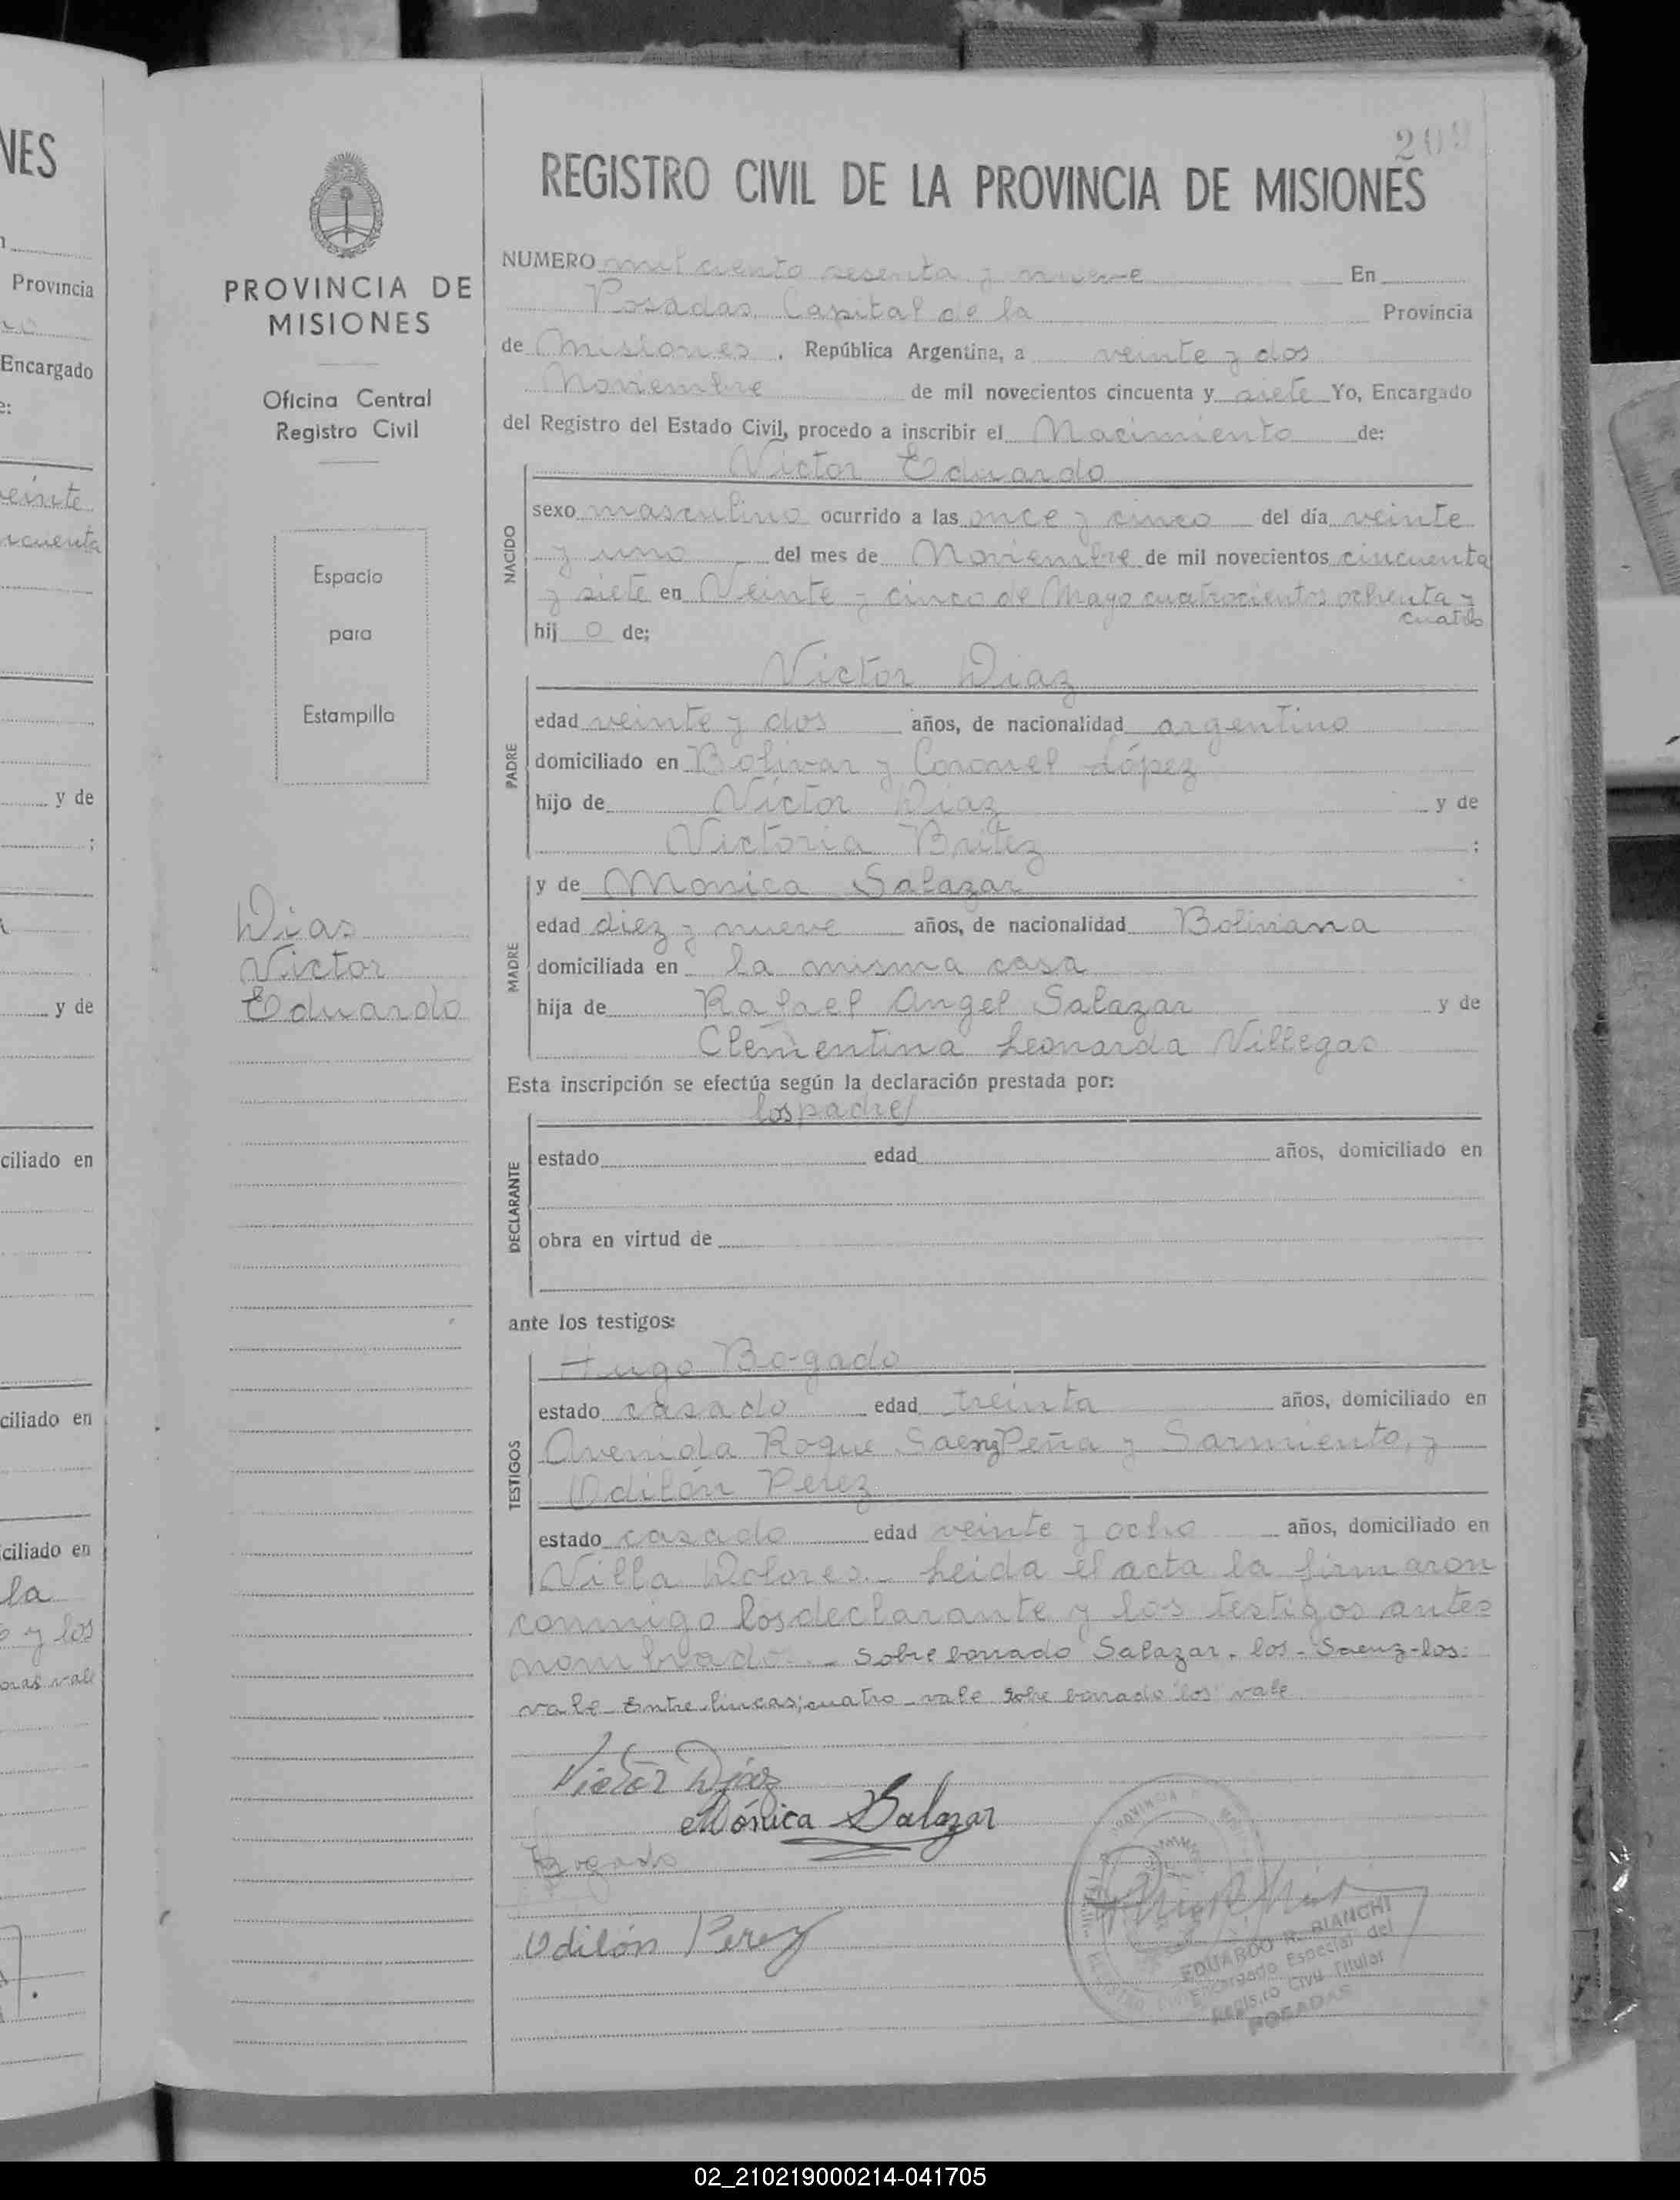 NES
Provincia
Encargado
veinte
ncuenta
y de
;
y de
ciliado en
ciliado en
ciliado en
la
y los
vale
PROVINCIA DE
MISIONES
Oficina Central
Registro Civil
Espacio
para
Estampilla
Dias
Victor
Eduardo
209
REGISTRO CIVIL DE LA PROVINCIA DE MISIONES
NUMERO mil ciento sesenta y nueve En
Posadas Capital de la Provincia
de Misiones, República Argentina, a veinte y dos
Noviembre de mil novecientos cincuenta y siete Yo, Encargado
del Registro del Estado Civil, procedo a inscribir el Nacimiento de:
Victor Eduardo
NACIDO
sexo masculino ocurrido a las once y cinco del día veinte
y uno del mes de Noviembre de mil novecientos cincuenta
y siete en Veinte y cinco de Mayo cuatrocientos ochenta y
cuatro
hij o de;
Victor Diaz
PADRE
edad veinte y dos años, de nacionalidad argentino
domiciliado en Bolivar y Coronel López
hijo de Victor Diaz y de
Victoria Britez ;
MADRE
y de Monica Salazar
edad diez y nueve años, de nacionalidad Boliviana
domiciliada en la misma casa
hija de Rafael Angel Salazar y de
Clementina Leonarda Villegas
Esta inscripción se efectúa según la declaración prestada por:
los padres
DECLARANTE
estado edad años, domiciliado en
obra en virtud de
ante los testigos:
Hugo Bogado
TESTIGOS
estado casado edad treinta años, domiciliado en
Avenida Roque Saenz Peña y Sarmiento, y
Odilón Perez
estado casado edad veinte y ocho años, domiciliado en
Villa Dolores.- Leida el acta la firmaron
conmigo los declarante y los testigos antes
nombrado.- Sobre borrado Salazar. los - Saenz - los:
vale Entre lineas; cuatro - vale Sobre borrado "los" vale
Victor Díaz
Mónica Salazar
Bogado
Odilón Perez
PROVINCIA
EDUARDO R. BIANCHI
Encargado Especial del
Registro Civil Titular
POSADAS
02_210219000214-041705